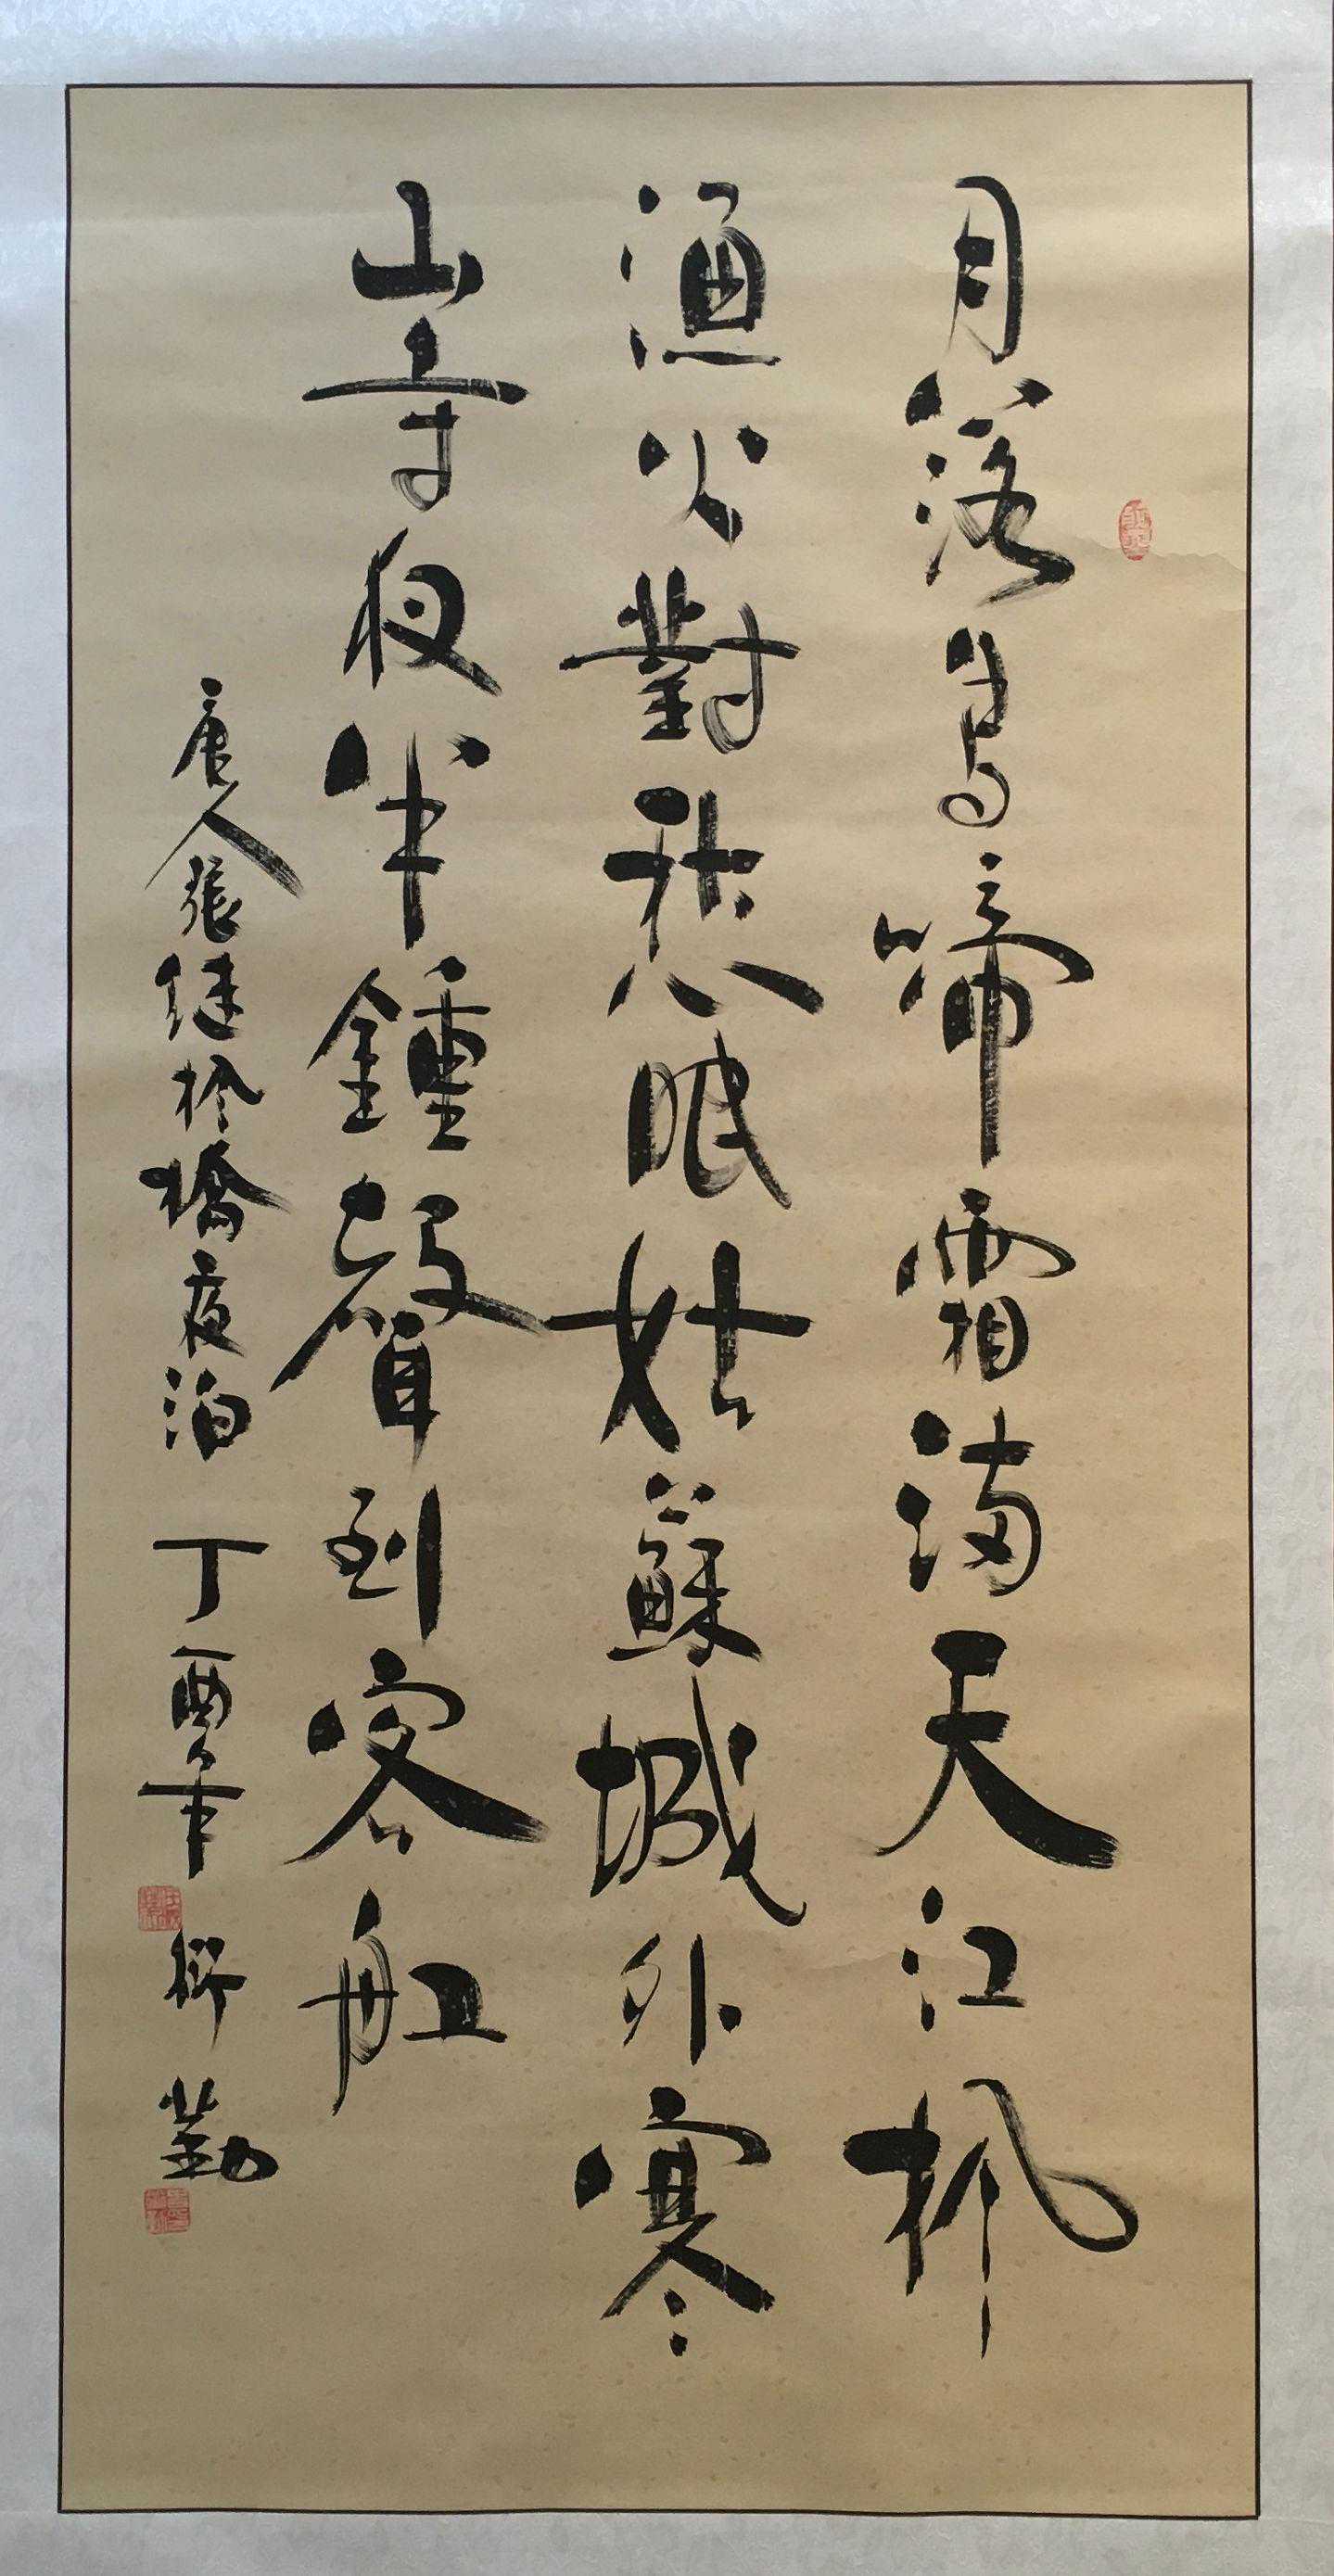 月落烏啼霜滿天江楓
漁火對愁眠姑蘇城外寒
山寺夜半鍾聲到客船
唐人張继楓橋夜泊 丁酉年 勤